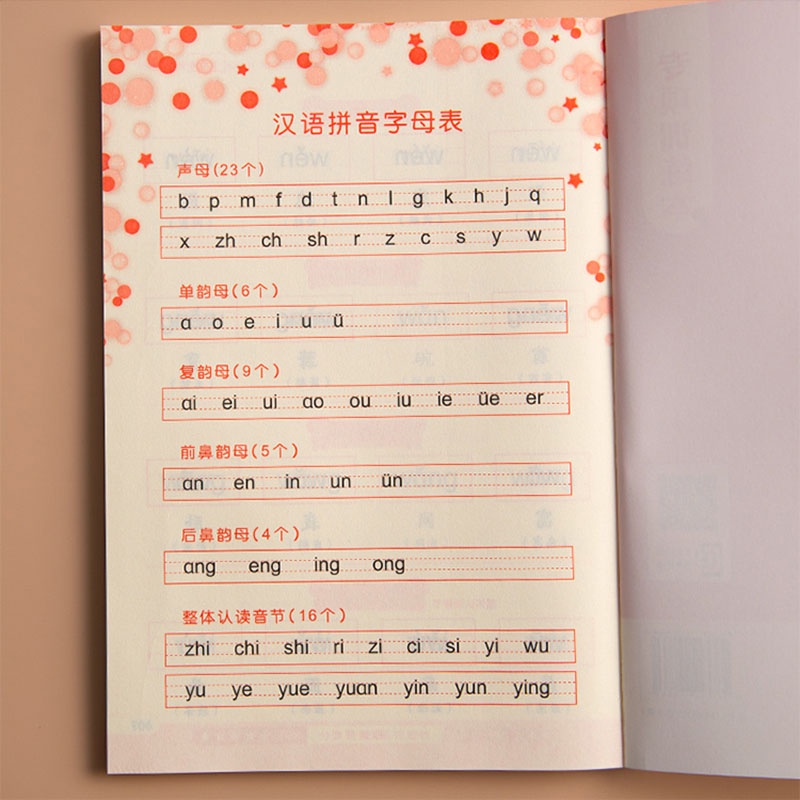 汉语拼音字母表
声母(23个)
b p m f d t n l g k h j q
x zh ch sh r z c s y w
单韵母(6个)
ɑ o e i u ü
复韵母(9个)
ɑi ei ui ɑo ou iu ie üe er
前鼻韵母(5个)
ɑn en in un ün
后鼻韵母(4个)
ɑng eng ing ong
整体认读音节(16个)
zhi chi shi ri zi ci si yi wu
yu ye yue yuɑn yin yun ying